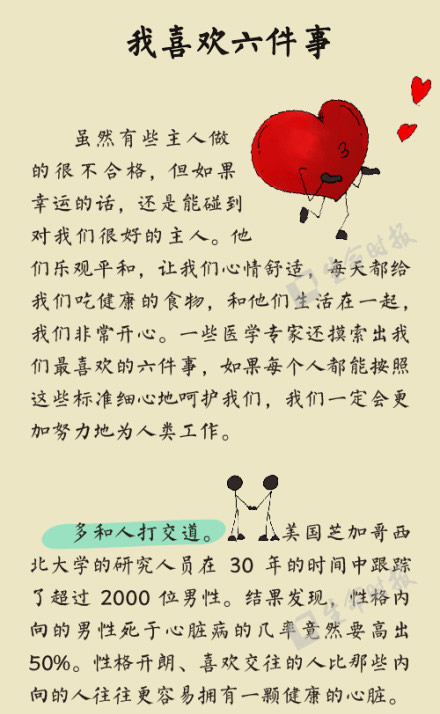 我喜欢六件事
虽然有些主人做
的很不合格，但如果
幸运的话，还是能碰到
对我们很好的主人。他
们乐观平和，让我们心情舒适，每天都给
我们吃健康的食物，和他们生活在一起，
我们非常开心。一些医学专家还摸索出我
们最喜欢的六件事，如果每个人都能按照
这些标准细心地呵护我们，我们一定会更
加努力地为人类工作。
多和人打交道。 美国芝加哥西
北大学的研究人员在 30 年的时间中跟踪
了超过 2000 位男性。结果发现，性格内
向的男性死于心脏病的几率竟然要高出
50%。性格开朗、喜欢交往的人比那些内
向的人往往更容易拥有一颗健康的心脏。
生命时报
生命时报